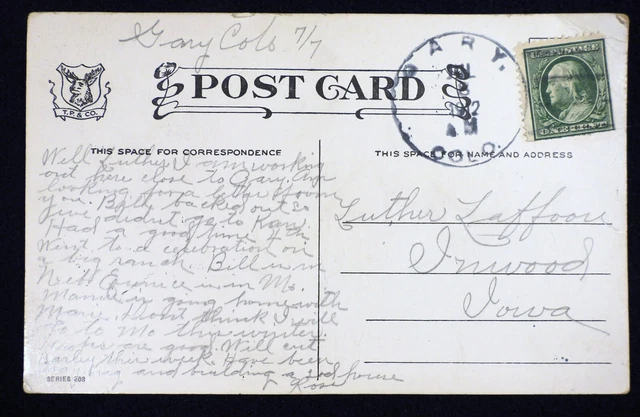 Gary Colo 7/7
POST CARD
T.P. & CO.
GARY.
COLO.
U.S. POSTAGE
ONE CENT
THIS SPACE FOR CORRESPONDENCE
THIS SPACE FOR NAME AND ADDRESS
Well Luther I am working
out here close to Gary. Am
looking for a letter from
you. Billy backed out &
Give didn't go to Kans.
Had a good time 4th
Went to a celebration on
a big ranch. Bill is in
Nebr Eunice is in Mo.
Mamie is going home with
Mary. Don't think I will
go to Mo this winter.
Crops are good. Will cut
Barley this week. Have been
and building a sod house
Rose
Luther Laffoon
Inwood
Iowa
SERIES 208